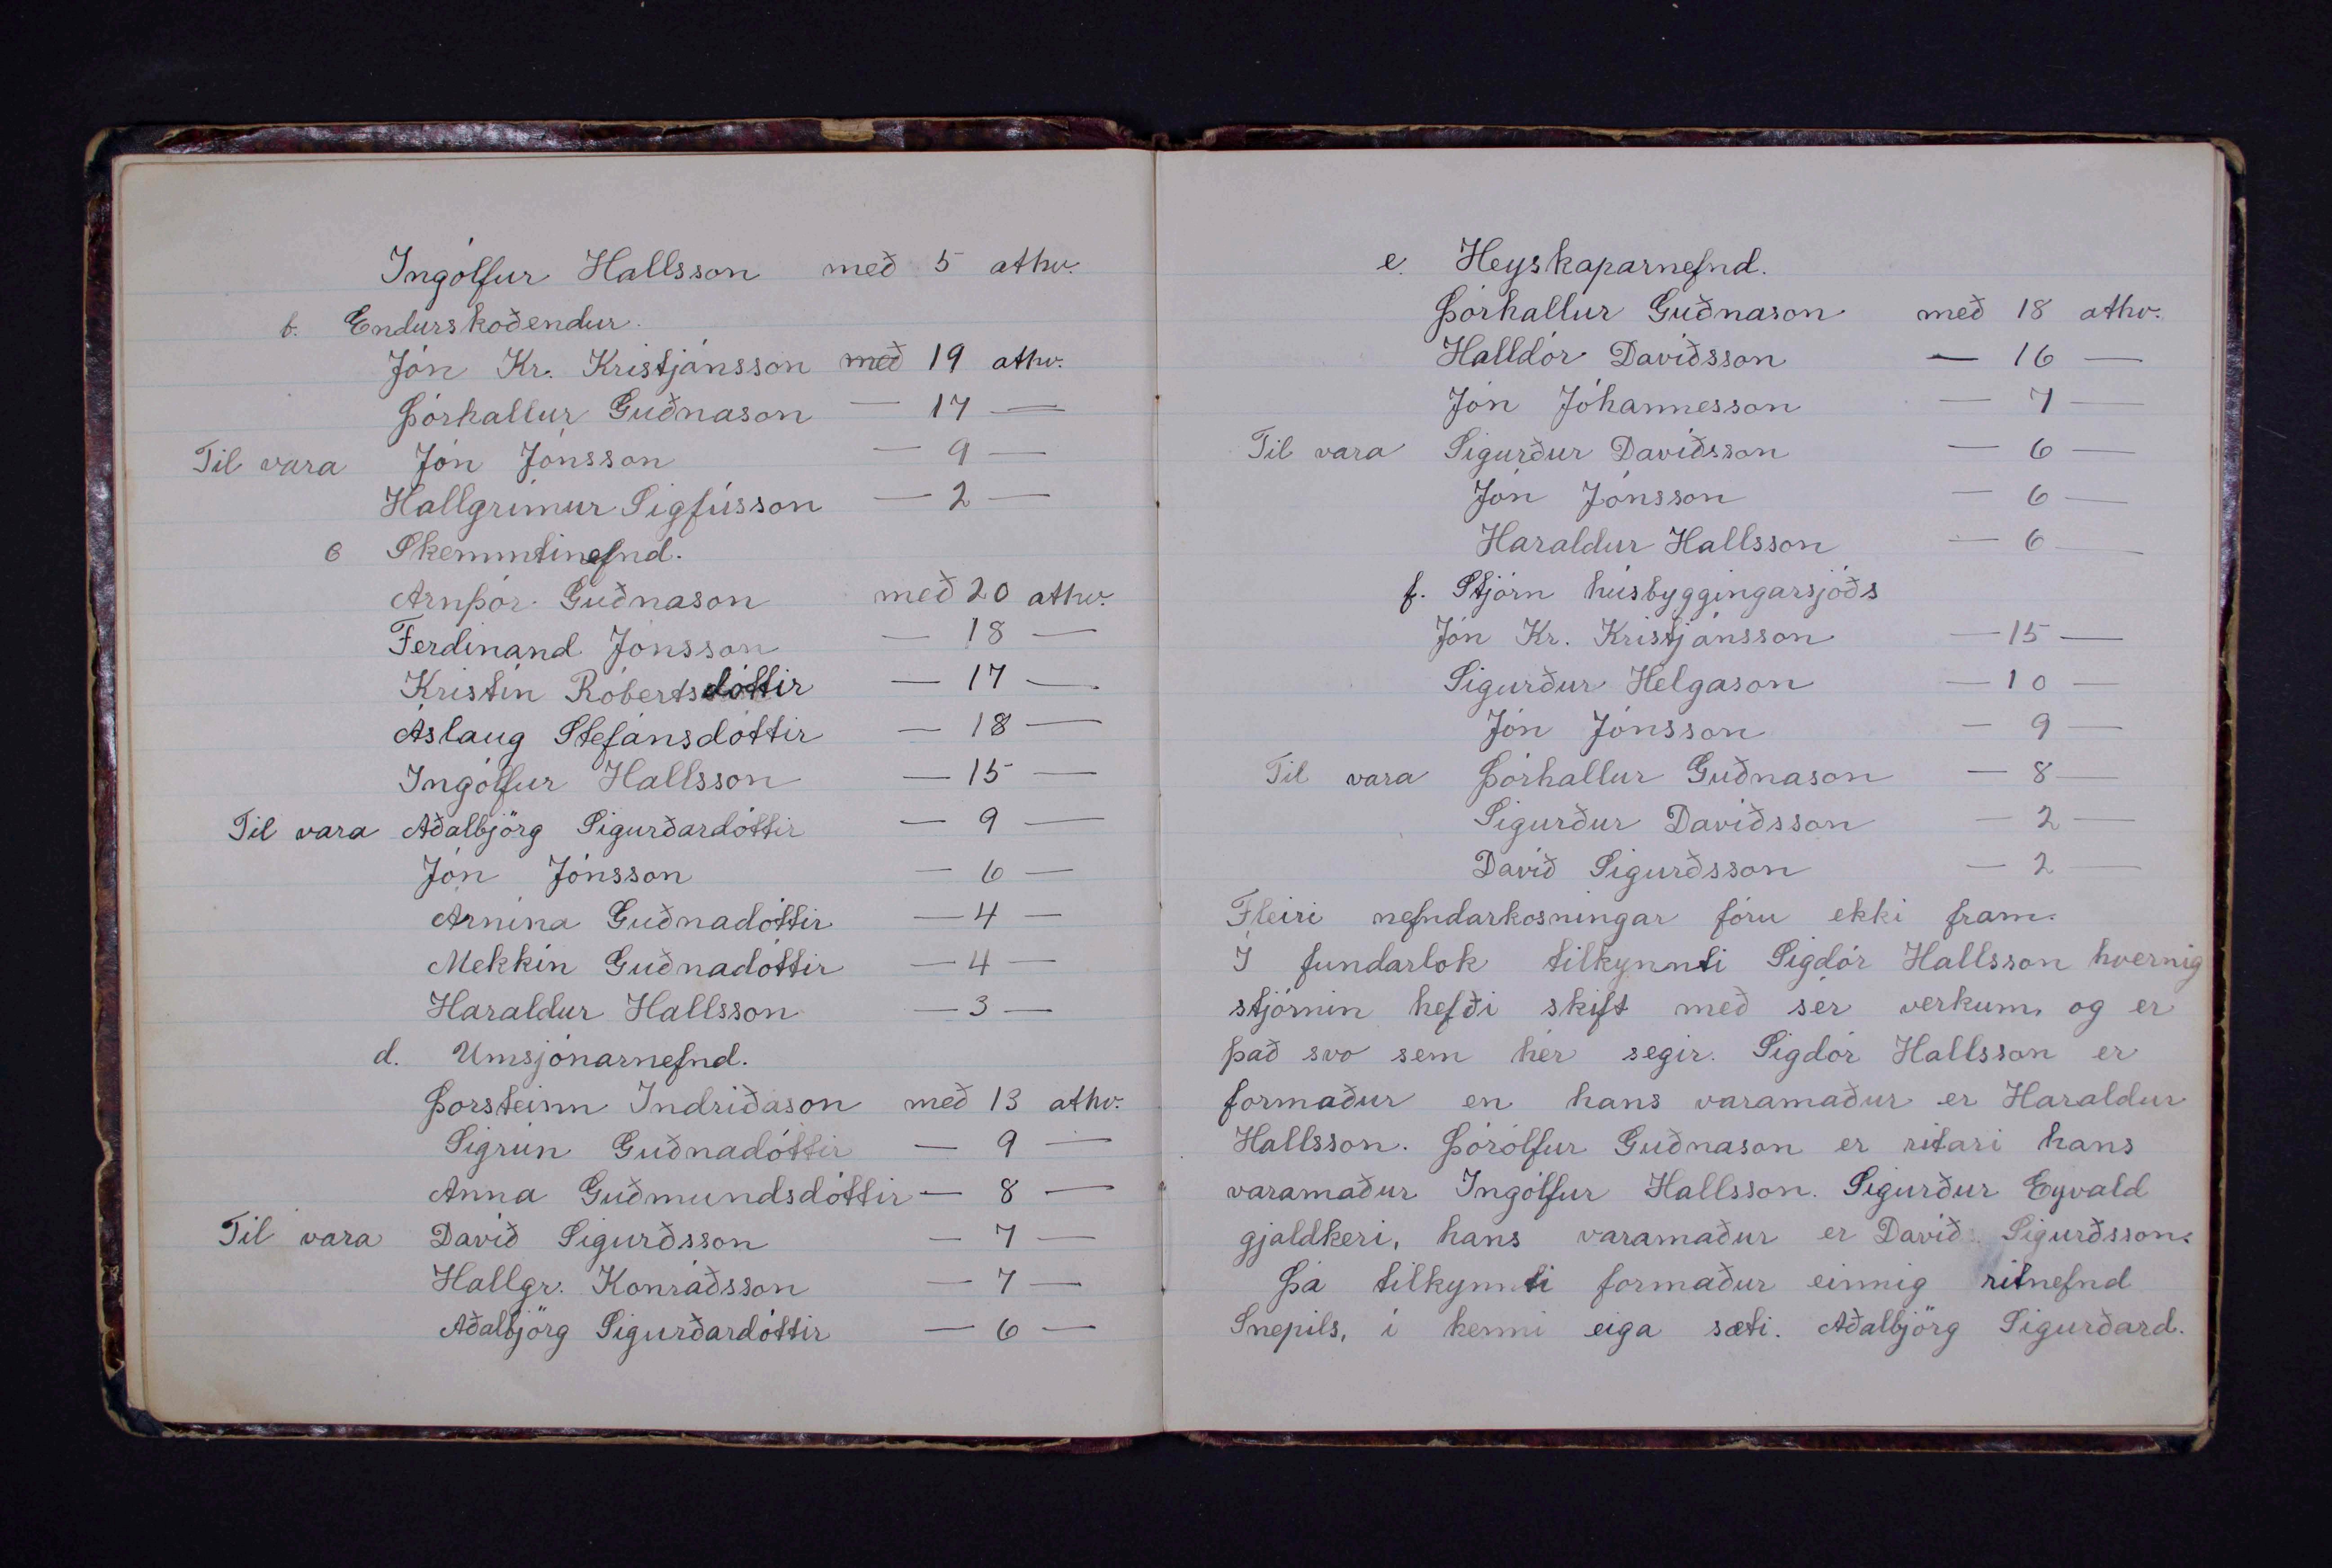 Ingólfur Hallsson með 5 atkv.
b. Endurskoðendur.
Jón Kr. Kristjánsson með 19 atkv.
Þórhallur Guðnason — 17 —
Til vara Jón Jónsson — 9 —
Hallgrímur Sigfússon — 2 —
c Skemmtinefnd.
Arnþór Guðnason með 20 atkv.
Ferdinand Jónsson — 18 —
Kristín Róbertsdóttir — 17 —
Áslaug Stefánsdóttir — 18 —
Ingólfur Hallsson — 15 —
Til vara Aðalbjörg Sigurðardóttir — 9 —
Jón Jónsson — 6 —
Arnína Guðnadóttir — 4 —
Mekkín Guðnadóttir — 4 —
Haraldur Hallsson — 3 —
d. Umsjónarnefnd.
Þorsteinn Indriðason með 13 atkv.
Sigrún Guðnadóttir — 9 —
Anna Guðmundsdóttir — 8 —
Til vara Davíð Sigurðsson — 7 —
Hallgr. Konráðsson — 7 —
Aðalbjörg Sigurðardóttir — 6 —
e. Heyskaparnefnd.
Þórhallur Guðnason með 18 atkv.
Halldór Davíðsson — 16 —
Jón Jóhannesson — 7 —
Til vara Sigurður Davíðsson — 6 —
Jón Jónsson — 6 —
Haraldur Hallsson — 6 —
f. Stjórn húsbyggingarsjóðs
Jón Kr. Kristjánsson — 15 —
Sigurður Helgason — 10 —
Jón Jónsson — 9 —
Til vara Þórhallur Guðnason — 8 —
Sigurður Davíðsson — 2 —
Davíð Sigurðsson — 2 —
Fleiri nefndarkosningar fóru ekki fram.
Í fundarlok tilkynnti Sigdór Hallsson hvernig
stjórnin hefði skift með sér verkum, og er
það svo sem hér segir. Sigdór Hallsson er
formaður en hans varamaður er Haraldur
Hallsson. Þórólfur Guðnason er ritari hans
varamaður Ingólfur Hallsson. Sigurður Eyvald
gjaldkeri, hans varamaður er Davíð Sigurðsson.
Þá tilkynnti formaður einnig ritnefnd
Snepils, í henni eiga sæti. Aðalbjörg Sigurðard.